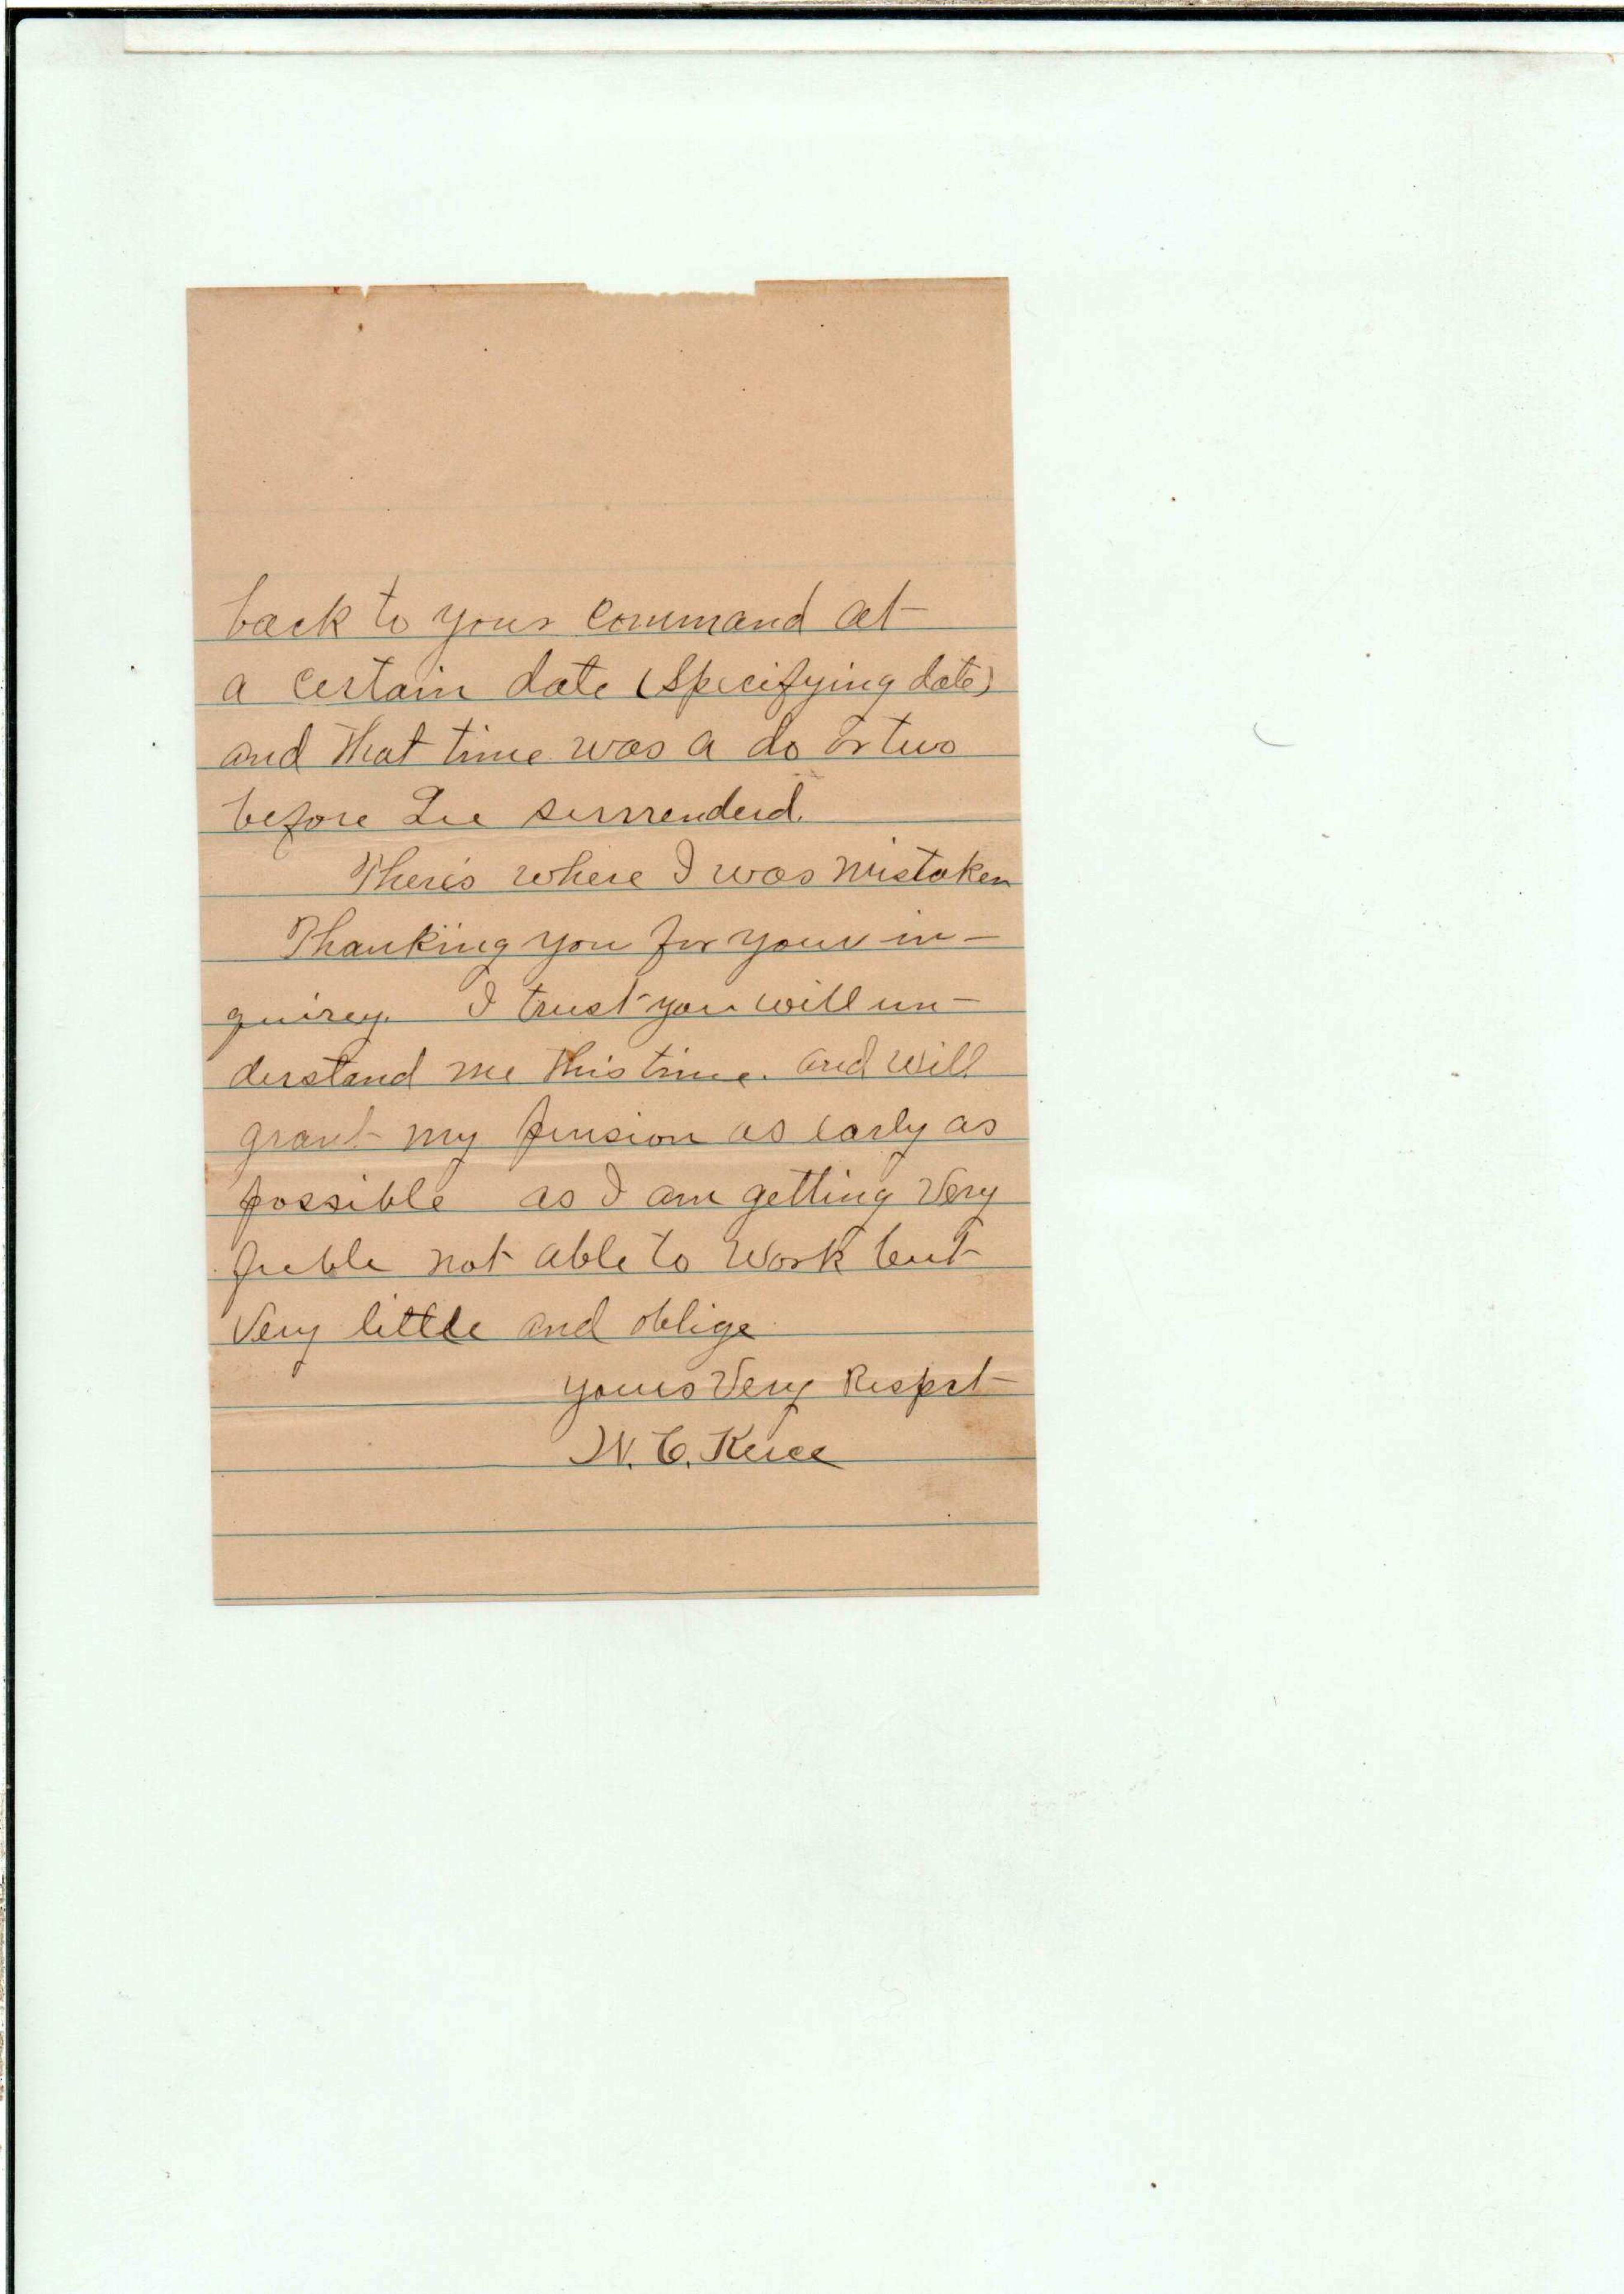 back to your command at
a certain date (specifying date)
and that time was a do or two
before Lee surrrenderd.
There's where I was mistaken
Thanking you for your in-
quirey. I trust you will un-
derstand me this time. and will
grant my pension as early as
possible as I am getting very
feeble not able to work but
very little and oblige
yours Very Respct
W. C. Kerce